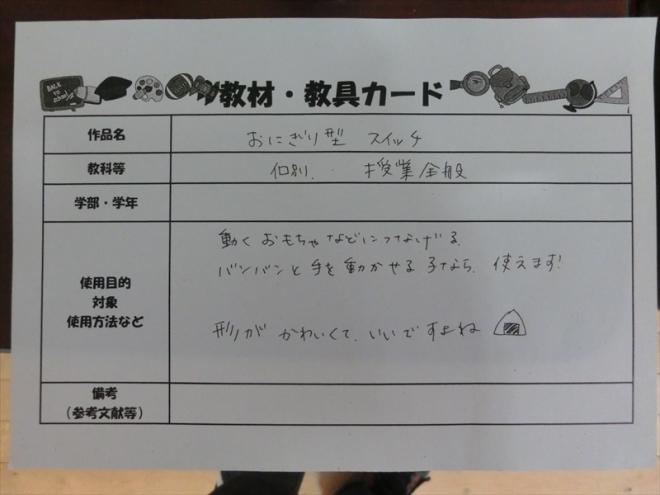 教材・教具カード
作品名
おにぎり型 スイッチ
教科等
個別. 授業全般
学部・学年
使用目的
対象
使用方法など
動く おもちゃなどにつなげる.
バンバンと 手を動かせる 子なら. 使えます!
形が かわいくて. いいですよね
備考
(参考文献等)